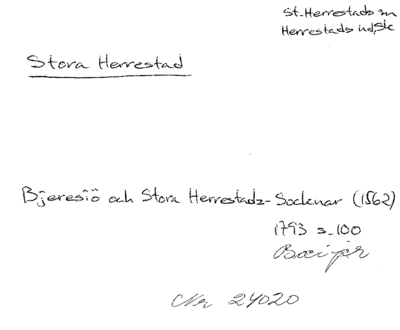 St. Herrestads sn
Herrestads hd, Sk
Stora Herrestad
Bjeresiö och Stora Herrestadz-Socknar (1562)
1793 s. 100
Nr 24020